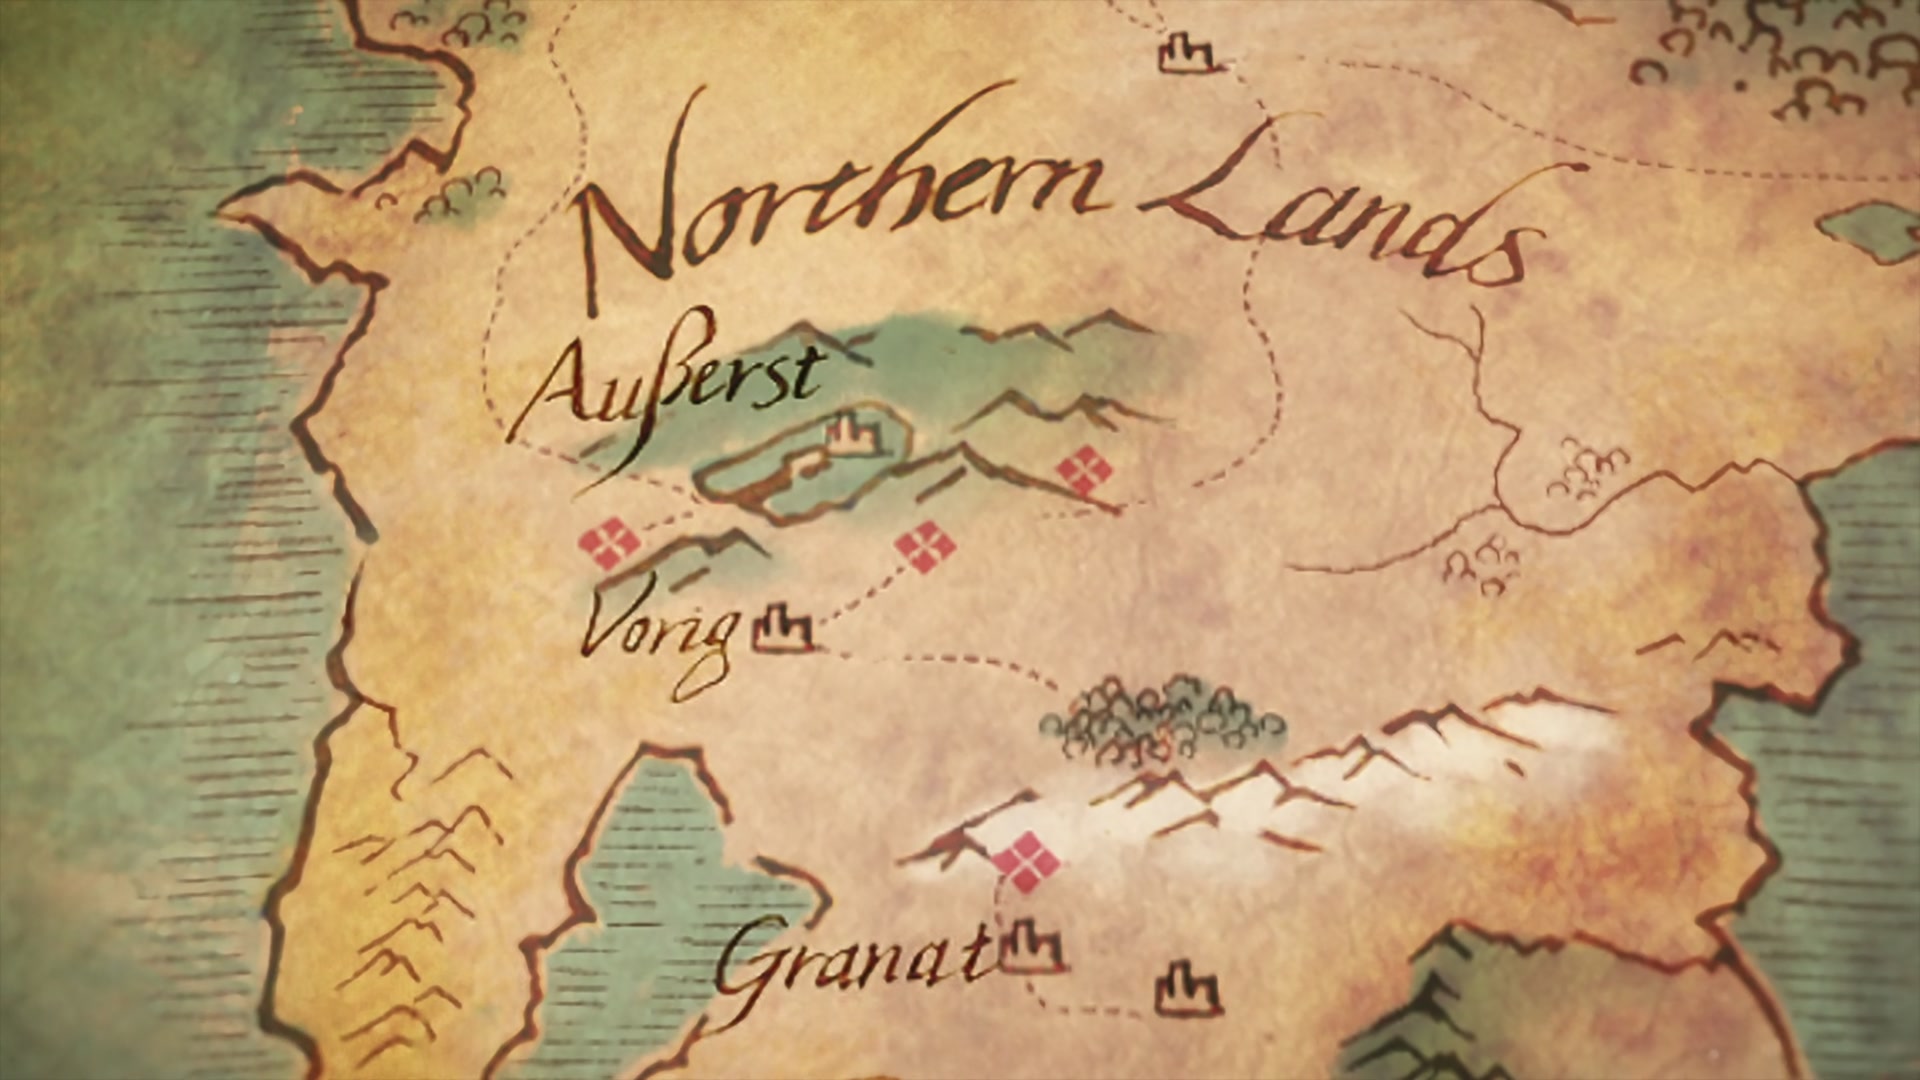 Northern Lands
Außerst
Vorig
Granat